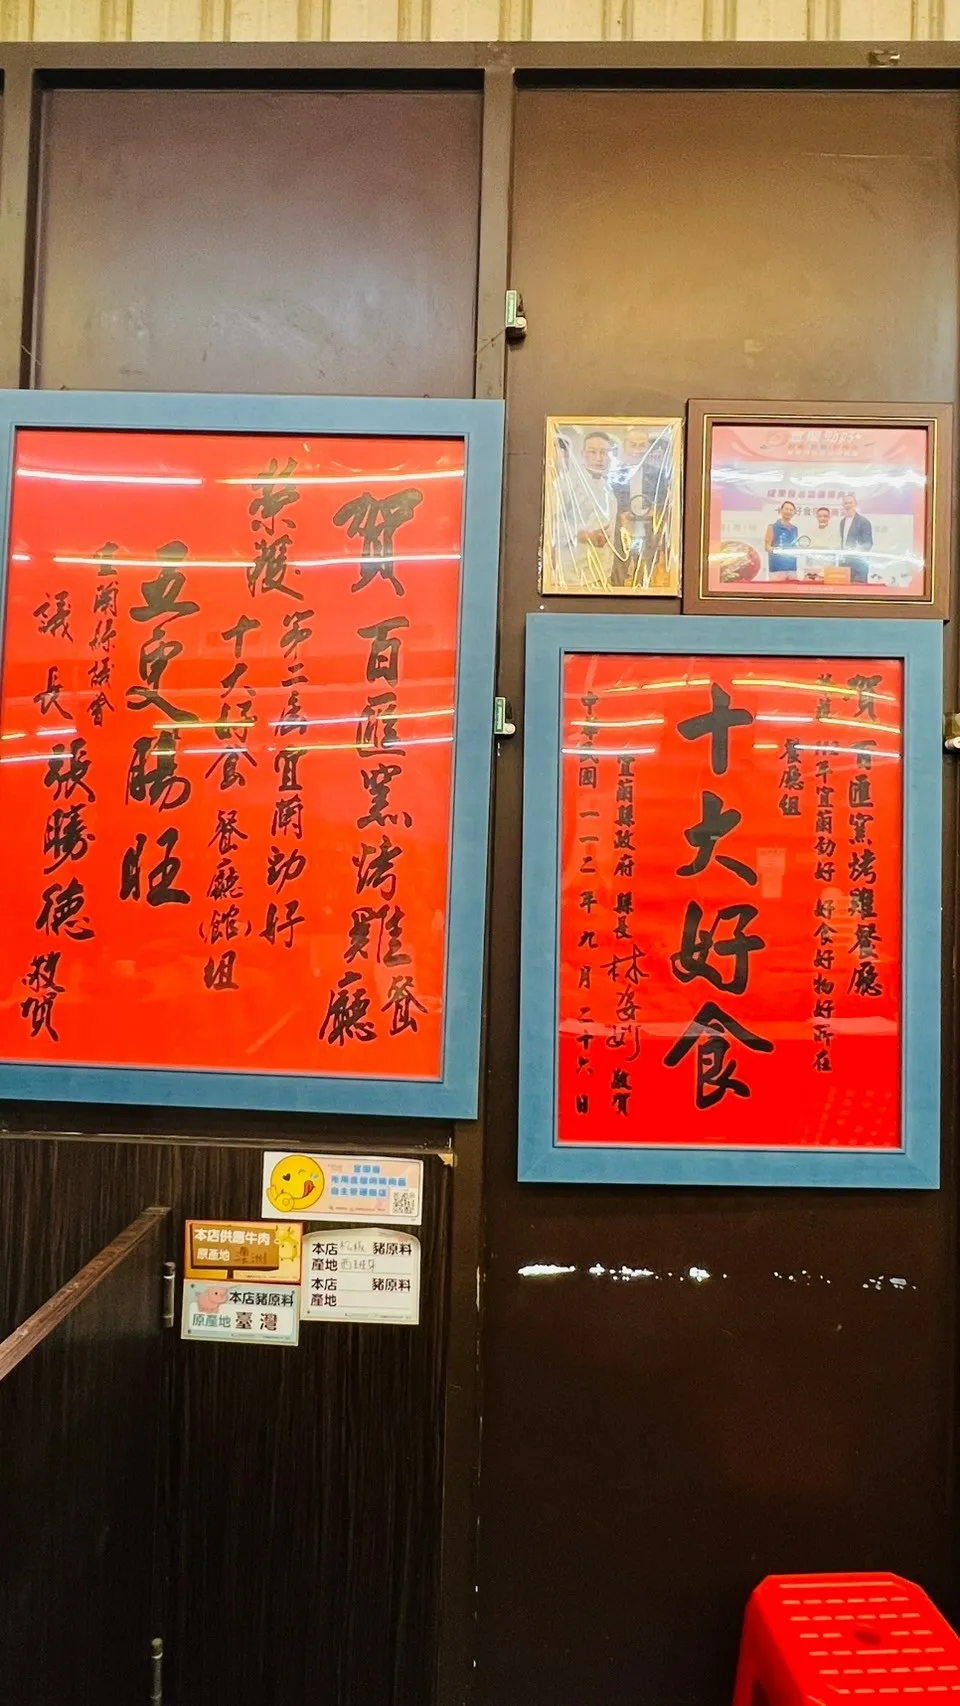 賀 百匯窯烤雞餐廳
榮獲
第二屆宜蘭勁好
十大好食 餐廳(館)組
五更腸旺
宜蘭縣議會
議長 張勝德 敬賀
賀 百匯窯烤雞餐廳
112年宜蘭勁好 好食好物好所在
餐廳組
十大好食
宜蘭縣政府 縣長 林姿妙 敬賀
中華民國一一二年九月二十六日
本店供應牛肉
原產地
本店豬原料
原產地 臺灣
本店 豬原料
產地 西班牙
本店 豬原料
產地